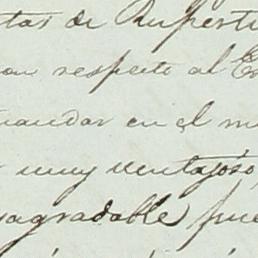 tas de Ruperti
con respecto al Es
mandar en el m
muy ventajoso,
sagradable pue